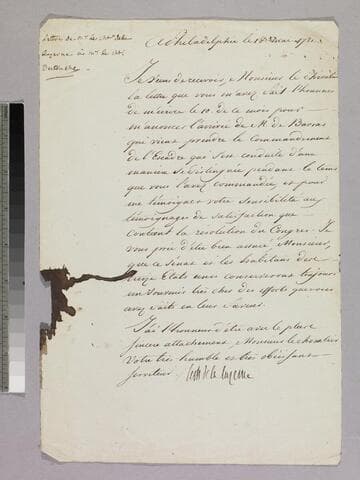 Lettre de Mr. le chr. de la
Luzerne à Mr. le chr.
Destouches
A Philadelphie le 1781.
Je viens de recevoir, Monsieur le chevalier
la lettre que vous m'avez fait l'honneur
de m'écrire le 10. de ce mois pour
m'anoncer l'arivée de M. de Barras
qui vient prendre le Commandement
de l'Escadre qui s'est conduite d'une
manière si distinguée pendant le tems
que vous l'avez commandée, et pour
me témoigner votre Sensibilité aux
témoignages de Satisfaction que
contient la résolution du Congrès. Je
vous prie d'être bien assuré Monsieur,
que le Sénat et les habitans des
treize Etats unis conserveront toujours
un souvenir très cher des efforts que vous
avez faits en leur faveur.
J'ai l'honneur d'être avec le plus
sincere attachement, Monsieur le chevalier
Votre très humble et très obéissant
serviteur. le ch de la luzerne